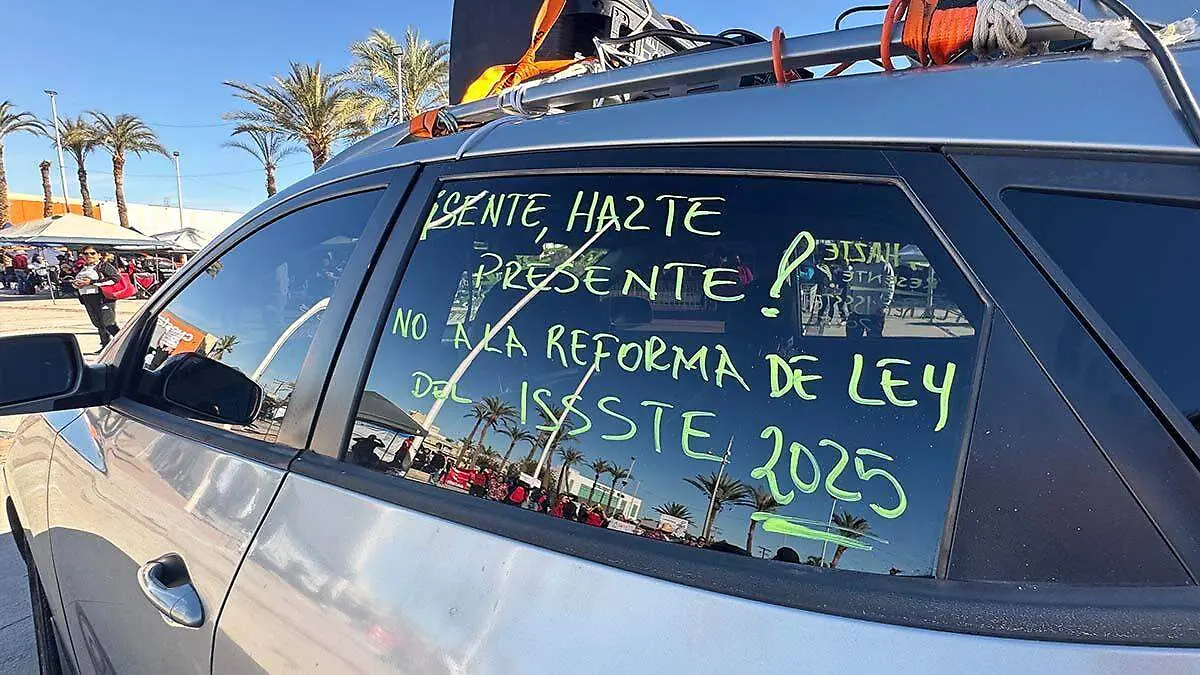 ¡SENTE, HAZTE
PRESENTE!
NO A LA REFORMA DE LEY
DEL ISSSTE 2025
HAZTE